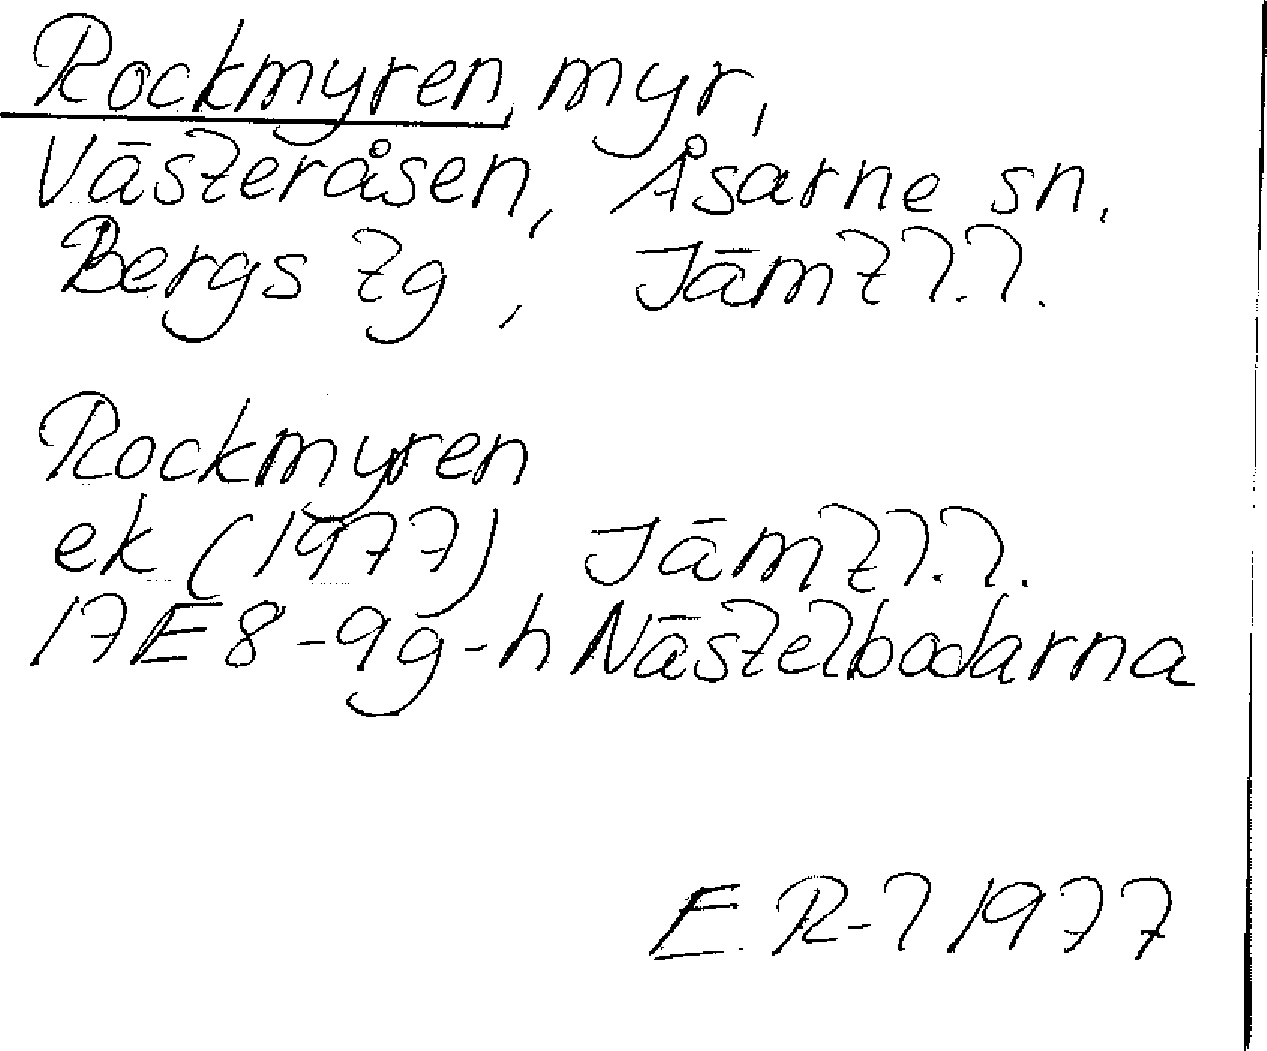 Rockmyren, myr,
Västeråsen, Åsarne sn,
Bergs tg, Jämtl.l.
Rockmyren
ek (1977) Jämtl.l.
17E 8-9g-h Nästelbodarna
E. R-l 1977